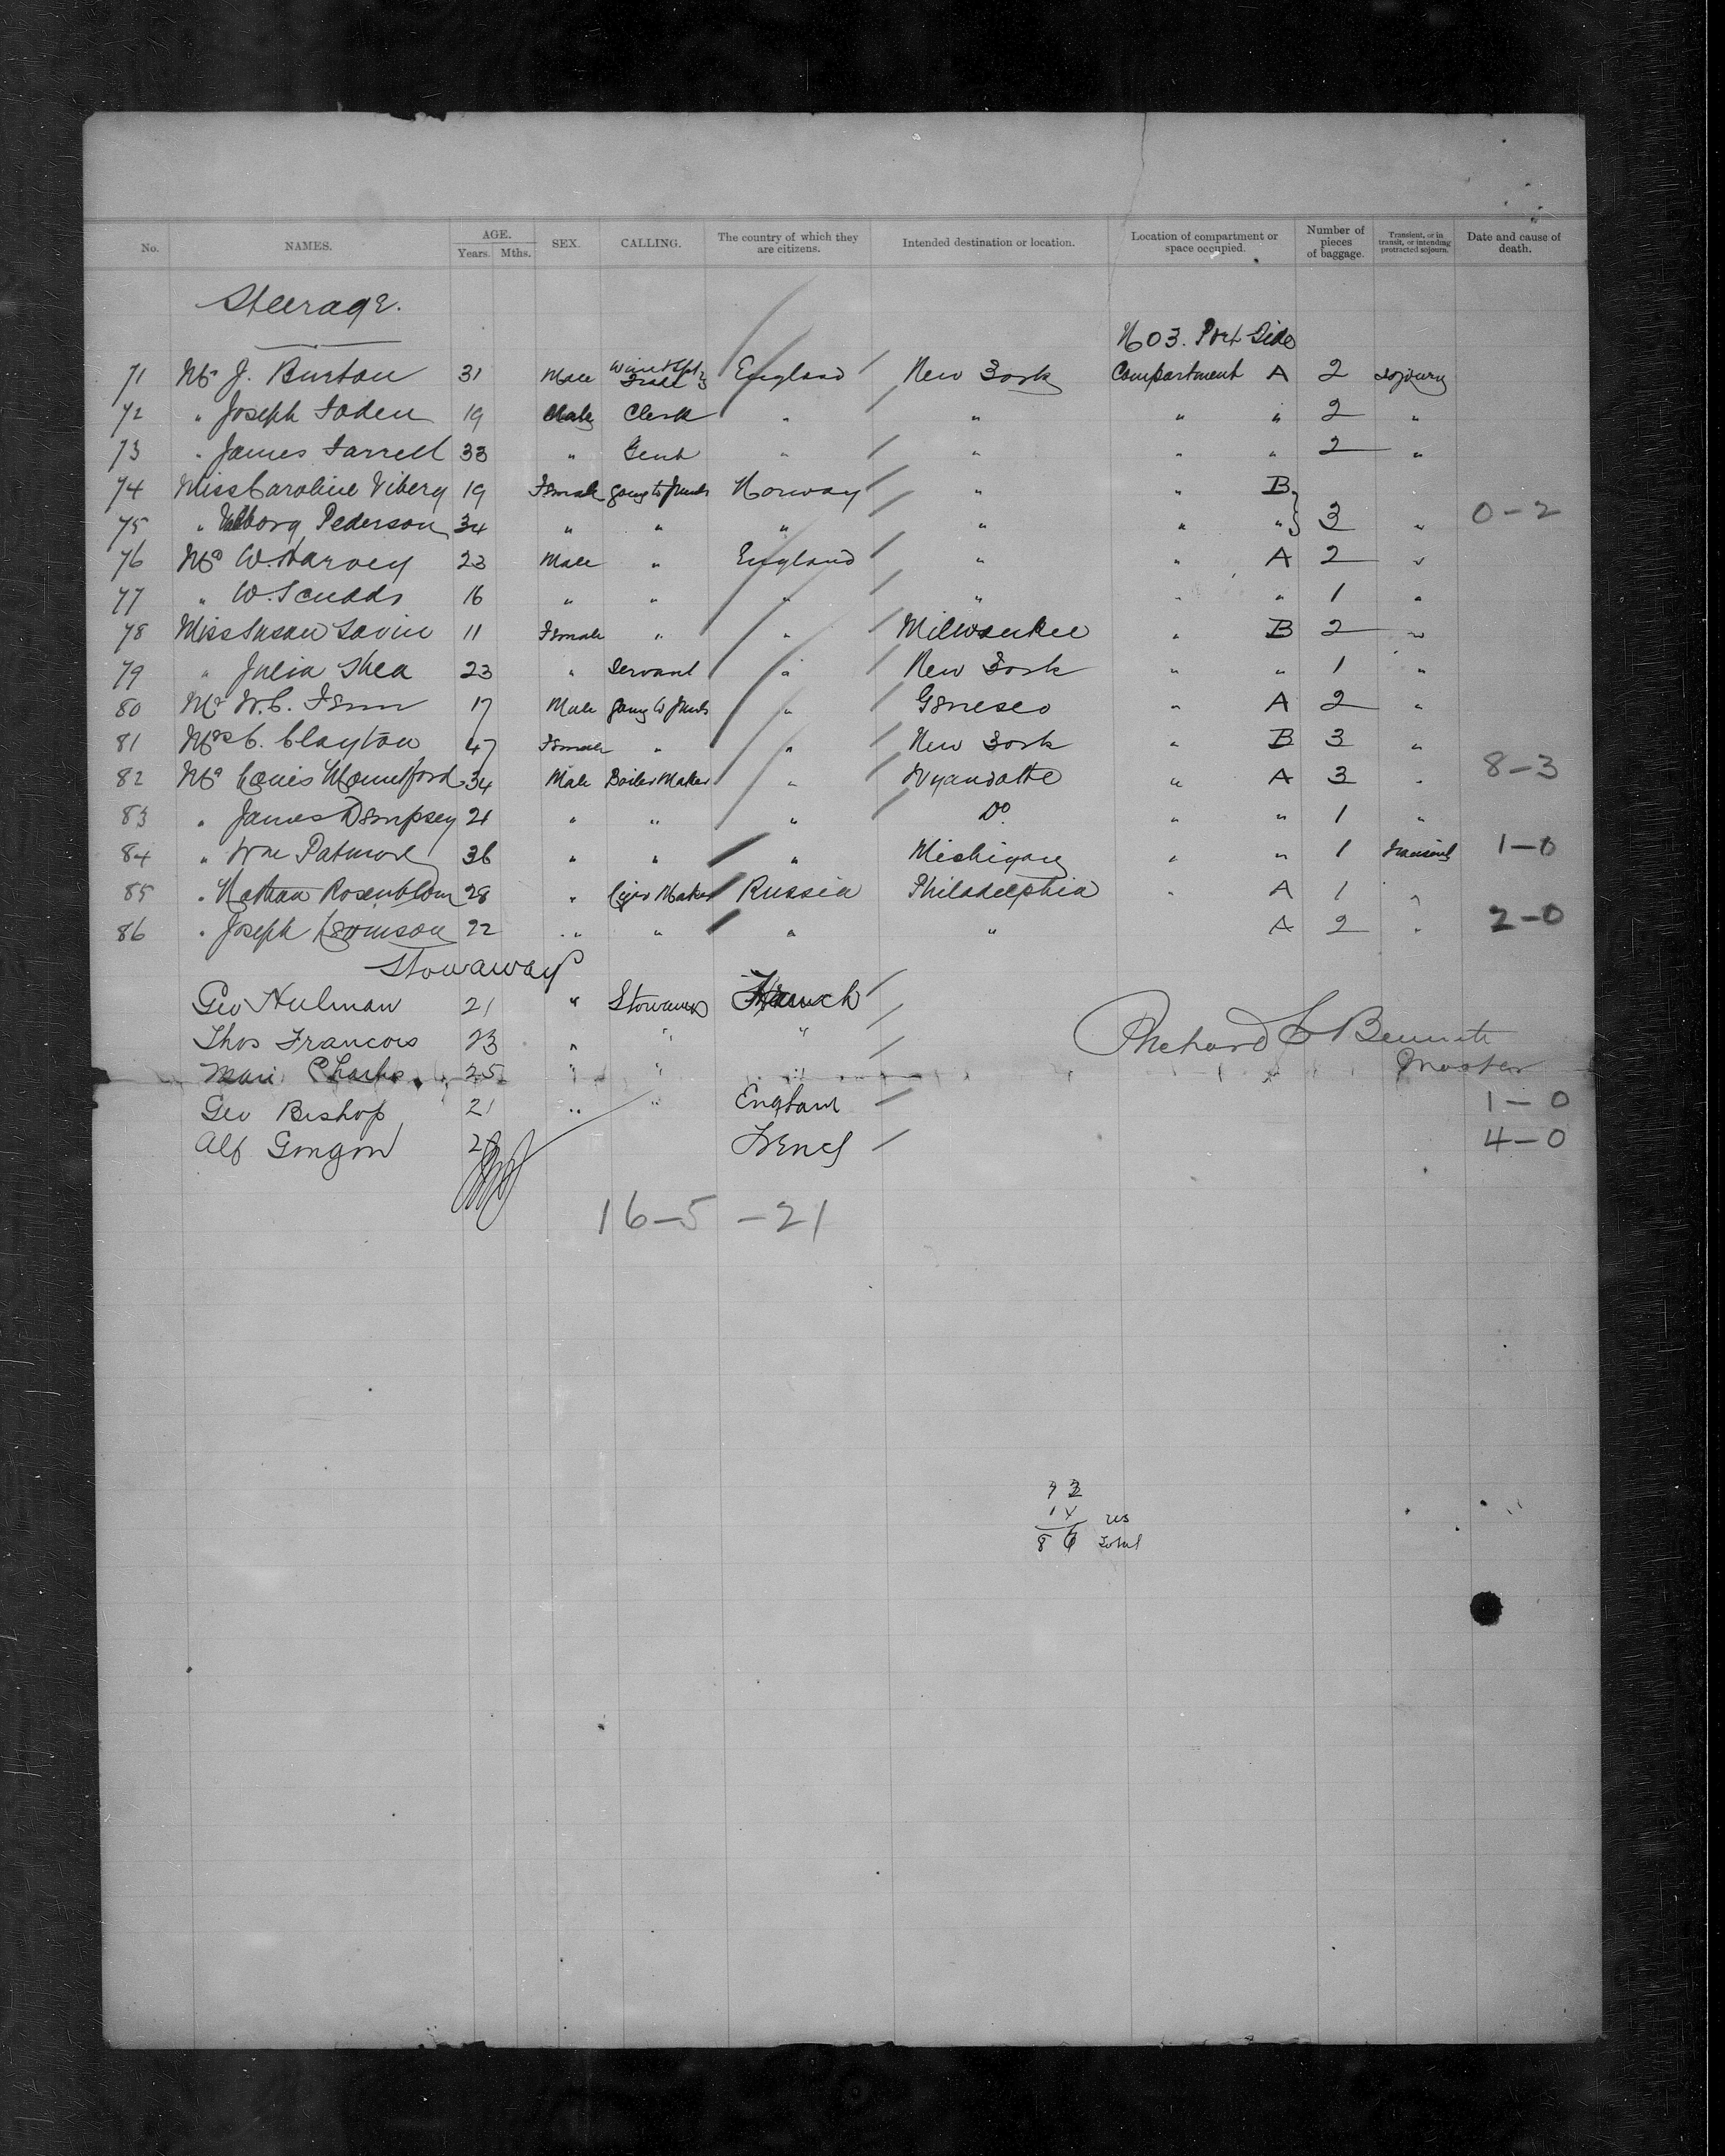 No. NAMES. AGE. Years. Mths. SEX. CALLING. The country of which they are citizens. Intended destination or location. Location of compartment or space occupied. Number of pieces of baggage. Transient, or in transit, or intending protracted sojourn. Date and cause of death.
Steerage.
No 3. Port Side
71 Mr J. Burton 31 Male Trade England New York Compartment A 2 sojourn
72 " Joseph Faden 19 Male Clerk " " " " 2 "
73 " James Farrell 33 " Gent " " " " 2 "
74 Miss Caroline Viberg 19 Female going to friends Norway " " B
75 " Valborg Pederson 34 " " " " " " 3 " 0-2
76 Mr W. Harvey 23 Male " England " " A 2 "
77 " W. Scudds 16 " " " " " " 1 "
78 Miss Susan Lavin 11 Female " " Milwaukee " B 2 "
79 " Julia Shea 23 " Servant " New York " " 1 "
80 Mr W. C. Fenn 17 Male going to friends " Geneseo " A 2 "
81 Mrs C. Clayton 47 Female " " New York " B 3 "
82 Mr Louis Mountford 34 Male Boiler Maker " Wyandotte " A 3 " 8-3
83 " James Dempsey 21 " " " Do. " " 1 "
84 " Wm Patmore 36 " " " Michigan " " 1 transient 1-0
85 " Nathan Rosenblom 28 " Cigar Maker Russia Philadelphia " A 1 "
86 " Joseph 22 " " " " A 2 " 2-0
Stowaways
Geo Hulman 21 " Stowaways French
Thos Francois 23 " " " Richard C Bennett
Mari Charles 25 " " " Master
Geo Bishop 21 " " England 1-0
Alf Gongon French 4-0
16-5-21
72
14 us
86 Total